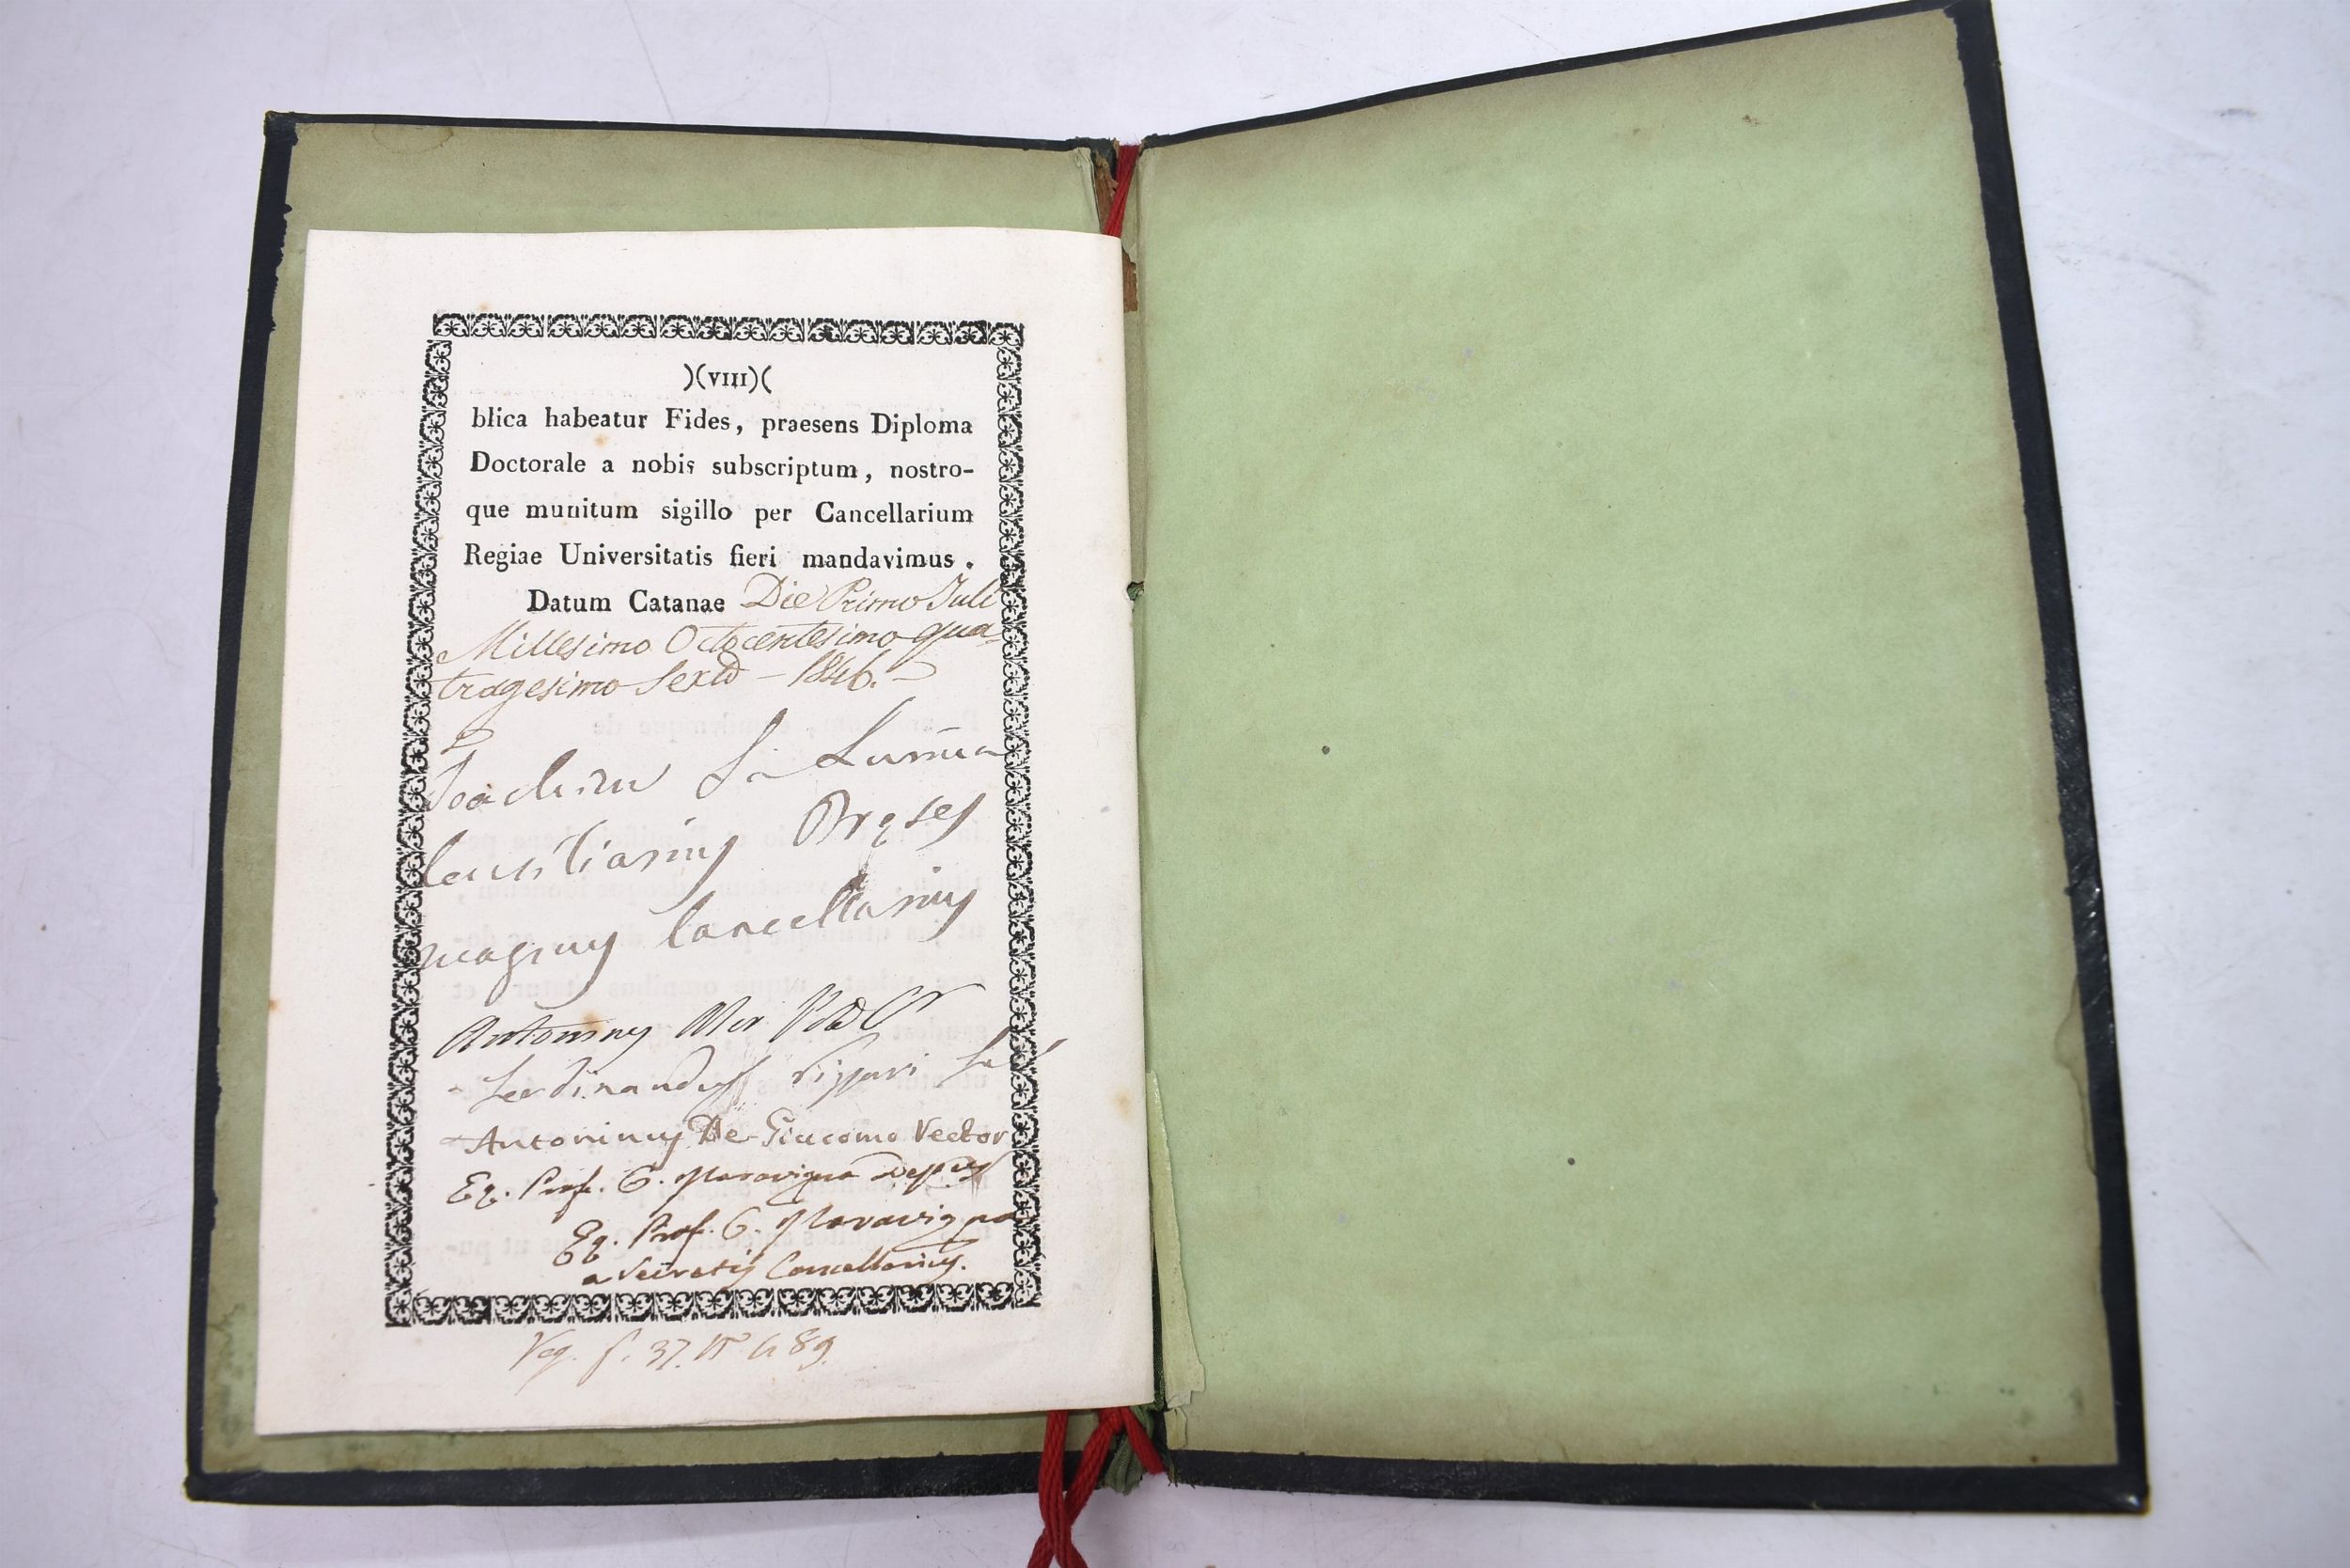 )(VIII)(
blica habeatur Fides, praesens Diploma
Doctorale a nobis subscriptum, nostro-
que munitum sigillo per Cancellarium
Regiae Universitatis fieri mandavimus.
Datum Catanae Die Primo Juli
Millesimo Octocentesimo qua-
tragesimo Sexto – 1846. –
Praeses
magnus Cancellarius
Antoninus
Ferdinandus
Antoninus De Giacomo Rector
Eq. Prof. C. Maravigna
Eq. Prof. C. Maravigna
a Secretis Cancellarius.
Reg. f. 37. N° 689.